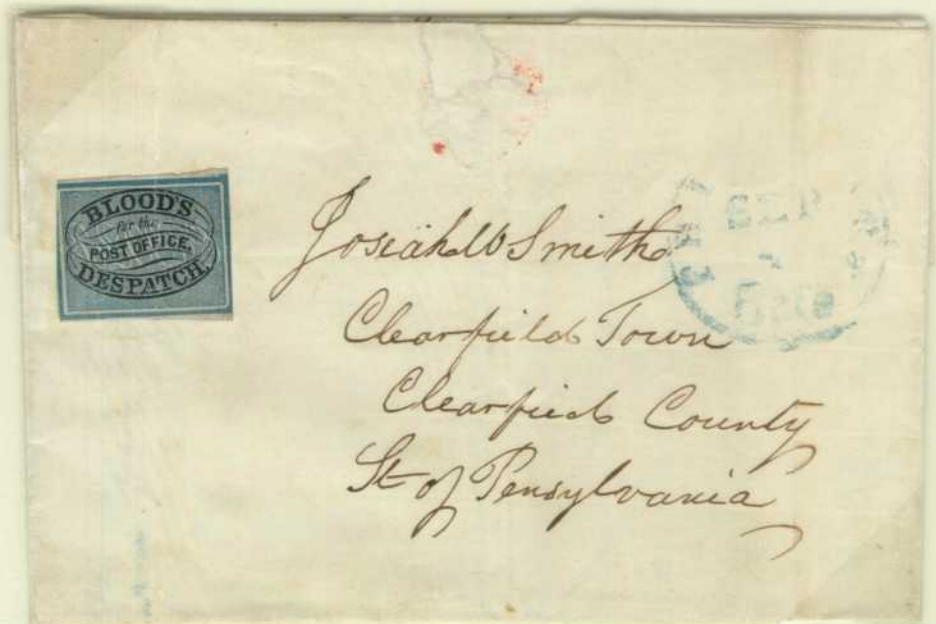 BLOOD'S
for the
POST OFFICE,
DESPATCH.
Josiah W Smith
Clearfield Town
Clearfield County
St of Pensylvania